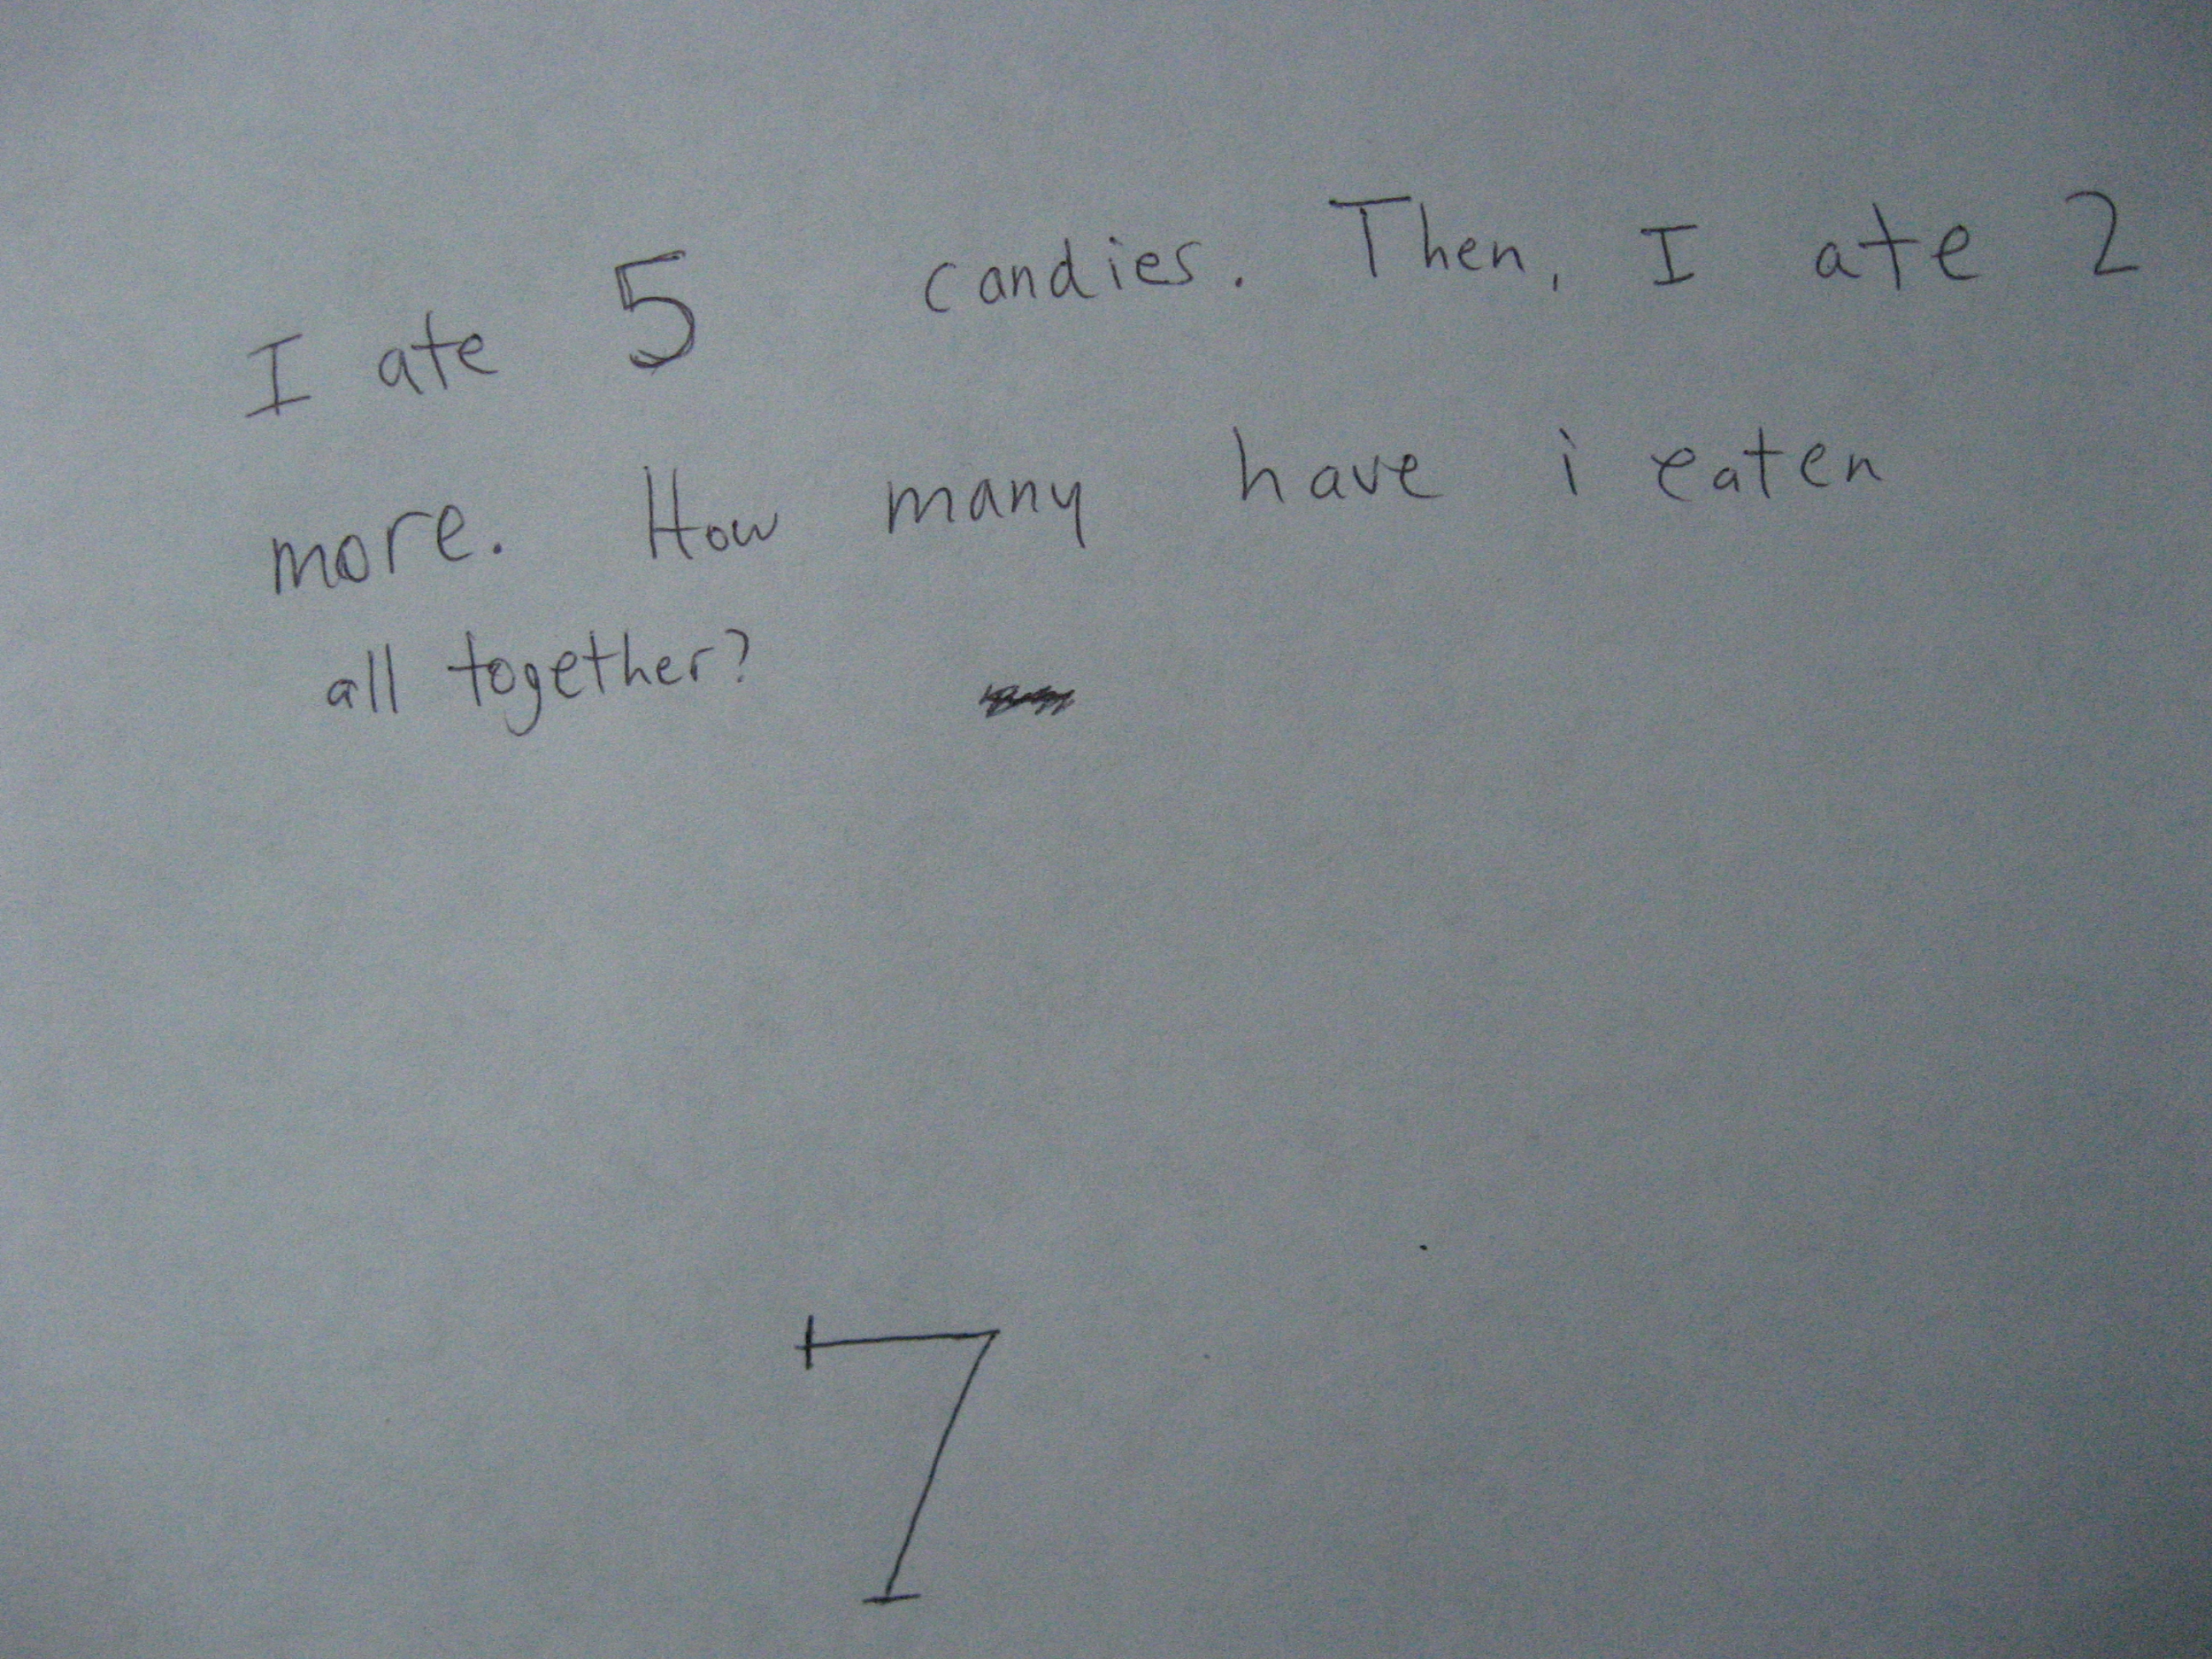 I ate 5 candies. Then, I ate 2
more. How many have i eaten
all together?
7